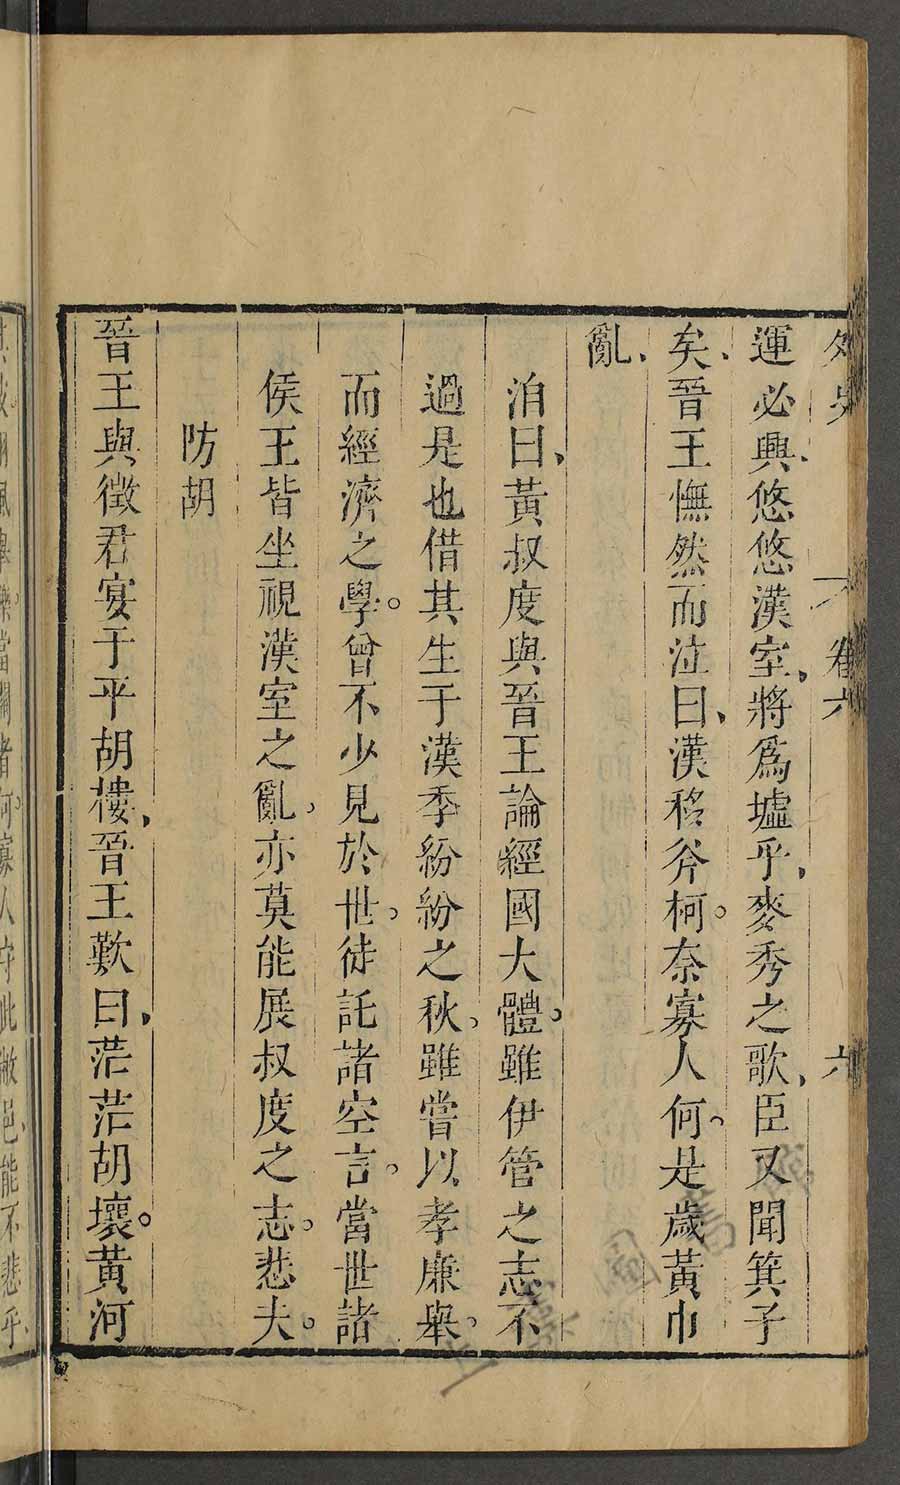 外史
卷六
六
運必興、悠悠漢室、將爲墟乎、麥秀之歌、臣又聞箕子
矣、晉王憮然而泣曰、漢移斧柯。奈寡人何。是歲黃巾
亂、
泊曰、黃叔度與晉王論經國大體。雖伊管之志不
過是也借其生于漢季紛紛之秋、雖嘗以孝廉舉、
而經濟之學。曾不少見於世。徒託諸空言。當世諸
侯王皆坐視漢室之亂、亦莫能展叔度之志。悲夫。
防胡
晉王與徵君宴于平胡樓、晉王歎曰、茫茫胡壤。黃河